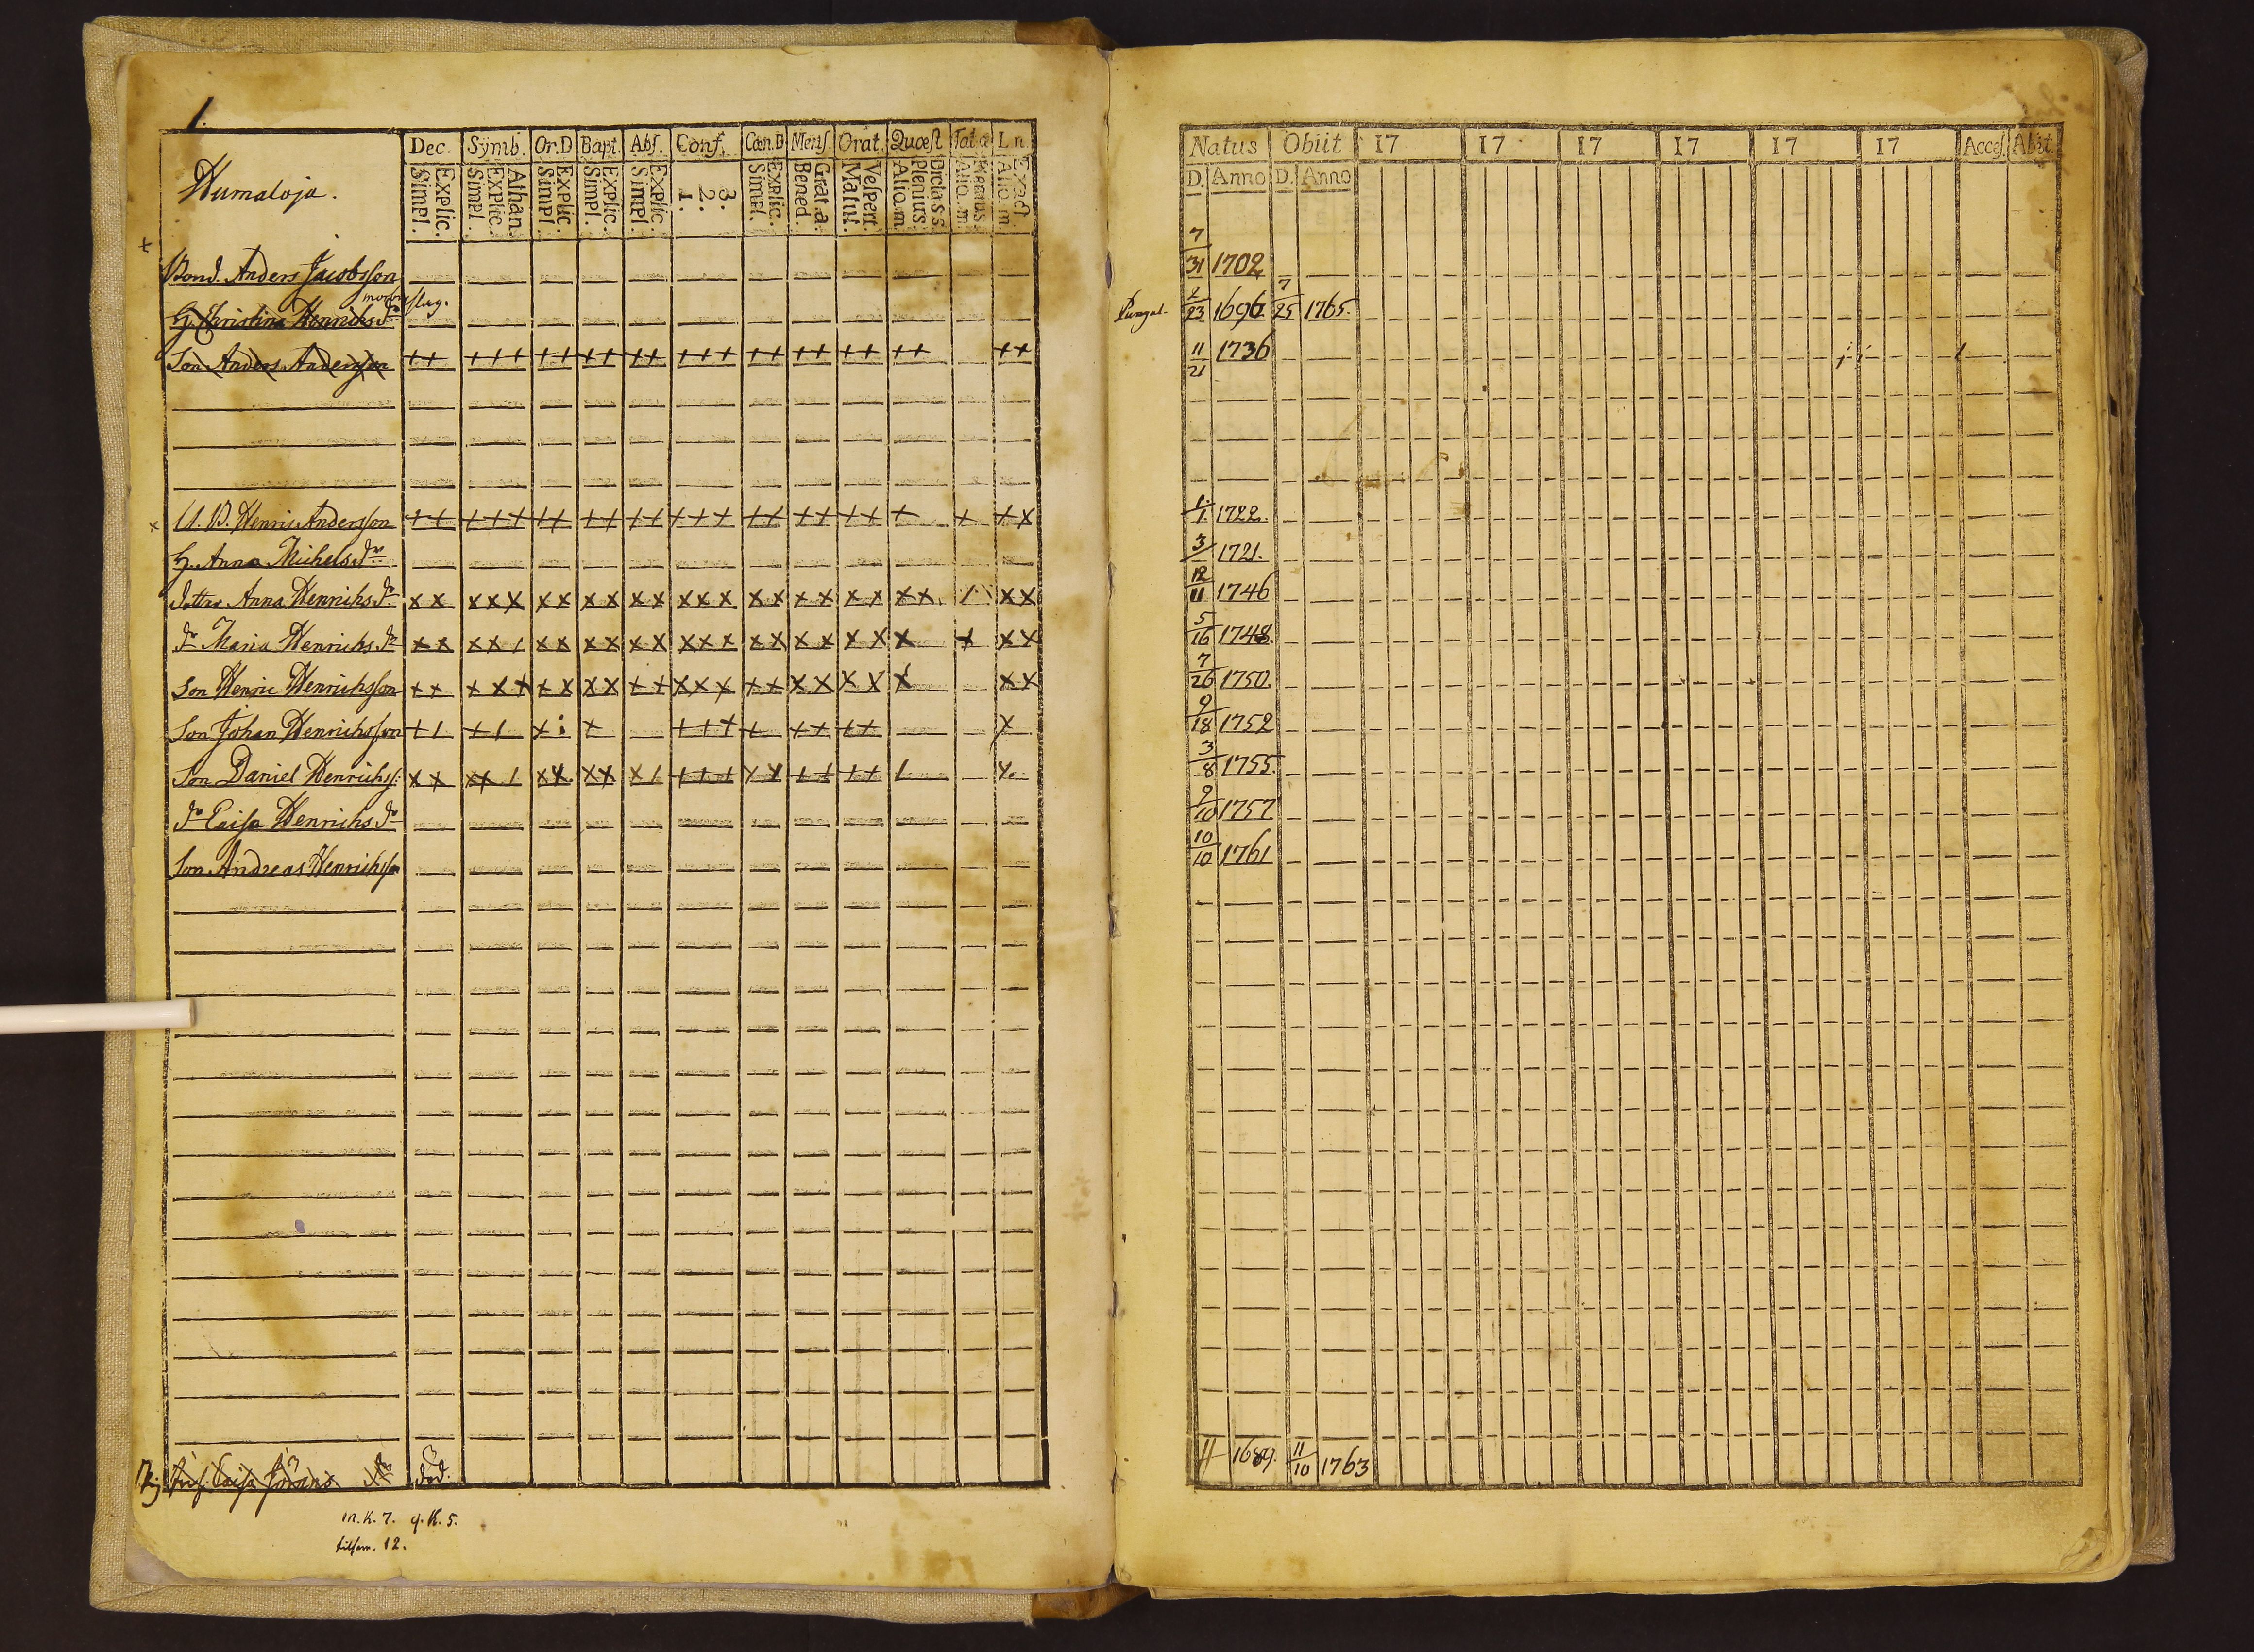 1.
Humaloja.
Dec. Symb. Or.D Bapt. Abs. Conf. Cœn.D Mens. Orat. Quæst Tota Ln
Simpl. Explic. Simpl. Explic. Athan. Simpl. Explic. Simpl. Explic. Simpl. Explic. 1. 2. 3. Simpl. Explic. Bened. Grat.a. Matut. Vespert. Alio.m. Plenius. Dictass. Alio.m. Plenius. Alio.m. Exact
+
Bond. Anders Jacobsson
H. Christina Henrichs dr
Son Anders Andersson ++ +++ ++ ++ ++ +++ ++ ++ ++ ++ ++
x U. B. Henric Andersson ++ +++ ++ ++ ++ +++ ++ ++ ++ + + +x
H. Anna Michels dr
dotter Anna Henrichs dr xx xxx xx xx xx xxx xx xx xx xx / xx
dr Maria Henrichs dr xx xx/ xx xx xx xxx xx xx xx x + xx
Son Henric Henrichsson ++ +x+ +x xx ++ xxx ++ xx xx x xx
Son Johan Henrichsson +/ +/ x: + +++ + ++ ++ x
Son Daniel Henrichs: xx xx/ xx xx x/ +++ xx ++ ++ / x.
dr Caisa Henrichs dr
Son Andreas Henrichsson
Caisa Jörans dr död.
m.K. 7. q.K. 5.
tilsam. 12.
Natus Obiit 17 17 17 17 17 17 Acces. Abit.
D. Anno D. Anno
7/31 1702
2/23 1696 7/25 1765.
11/21 1736
1/1. 1722.
3/ 1721.
12/11 1746
5/16 1748.
7/26 1750.
9/18 1752
3/8 1755.
9/10 1757
10/10 1761
11/10 1763